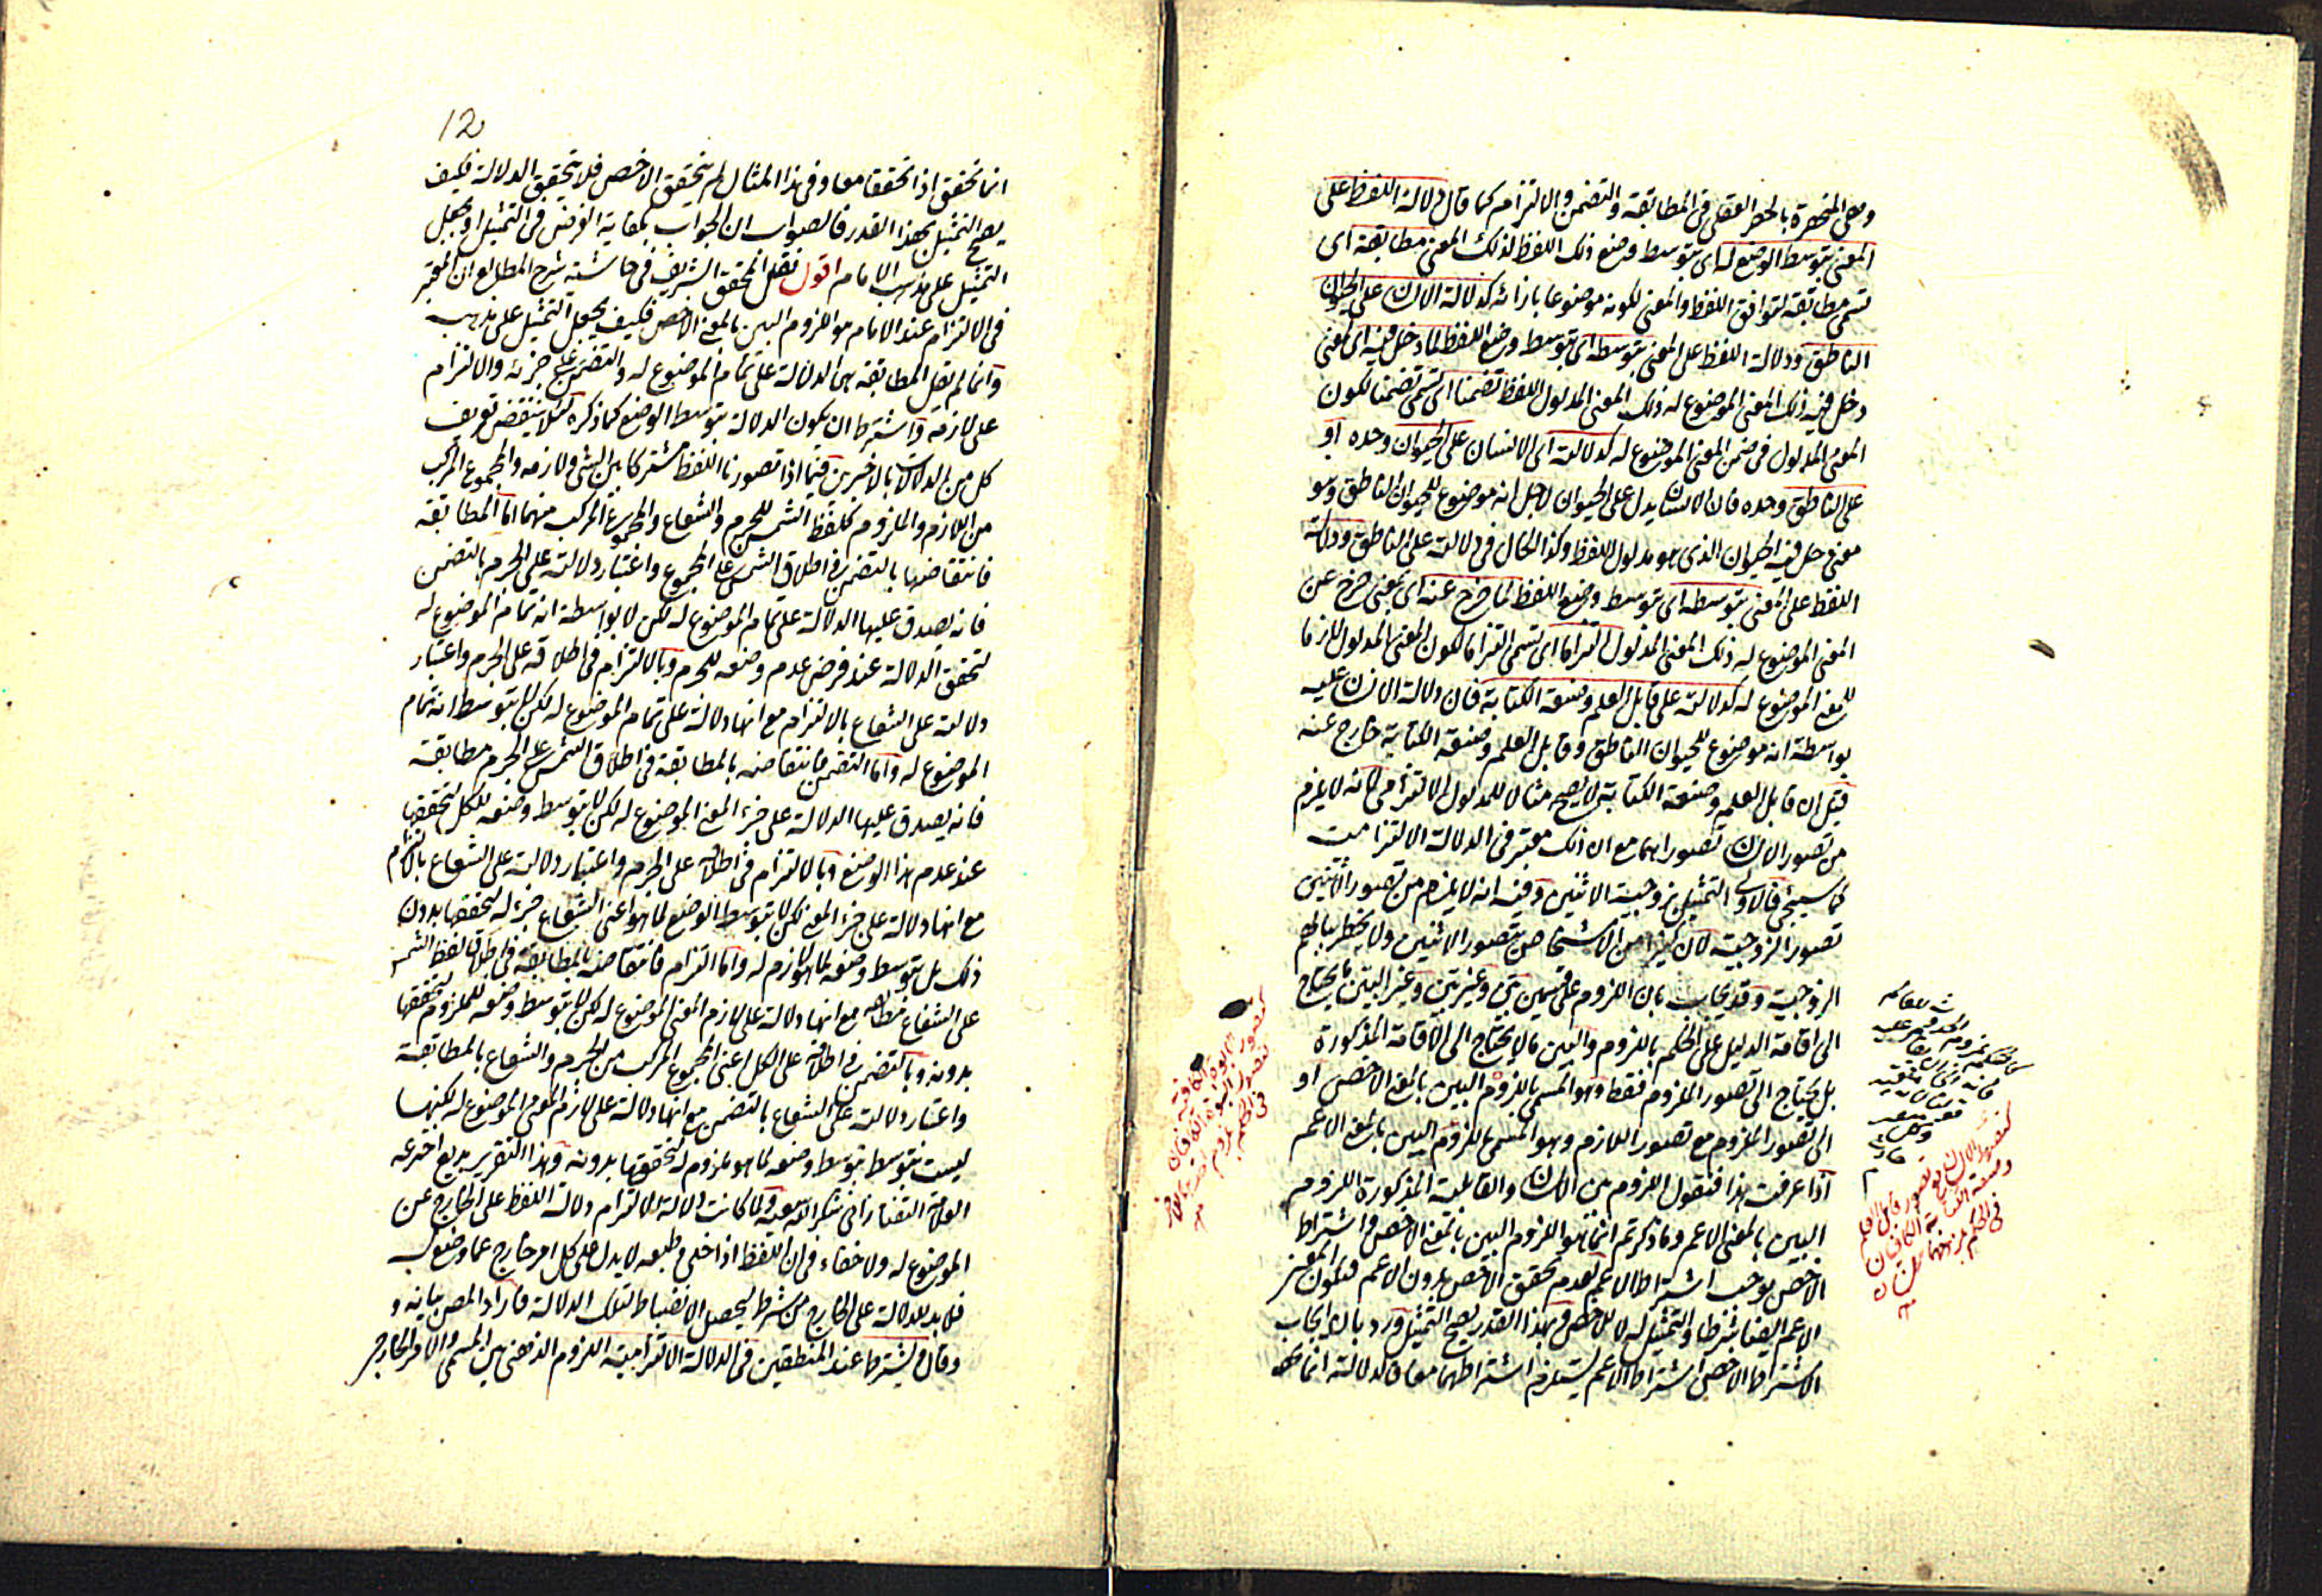 وهى المنحصرة بالحصر العقلى فى المطابقة والتضمن والالتزام كما قال دلالة اللفظ على
المعنى بتوسط الوضع له اى بتوسط وضع ذلك اللفظ لذلك المعنى مطابقة اى
تسمى مطابقة لتوافق اللفظ والمعنى لكونه موضوعا بازائه كدلالة الانسان على الحيوان
الناطق ودلالة اللفظ على المعنى بتوسطه اى بتوسط وضع اللفظ لما دخل فيه اى لمعنى
دخل فيه ذلك المعنى الموضوع له ذلك المعنى المدلول اللفظ تضمنا اى تسمى تضمنا لكون
المعنى المدلول فى ضمن المعنى الموضوع له كدلالته اى الانسان على الحيوان وحده او
على الناطق وحده فان الانسان يدل على الحيوان لاجل انه موضوع للحيوان الناطق وهو
معنى دخل فيه الحيوان الذى هو مدلول اللفظ وكذا الحال فى دلالته على الناطق ودلالة
اللفظ على المعنى بتوسطه اى بتوسط وضع اللفظ لما خرج عنه اى لمعنى خرج عن
المعنى الموضوع له ذلك المعنى المدلول التزاما اى تسمى التزاما لكون المعنى المدلول لازما
للمعنى الموضوع له كدلالته على قابل العلم وصنعة الكتابة فان دلالة الانسان عليه
بواسطة انه موضوع للحيوان الناطق وقابل العلم وصنعة الكتابة خارج عنه
قيل ان قابل العلم وصنعة الكتابة لا يصح مثالا للمدلول الالتزامى لانه لا يلزم
من تصور الانسان تصورهما مع ان ذلك معتبر فى الدلالة الالتزامية
كما سيجئ فالاولى التمثيل بزوجية الاثنين وفيه انه لا يلزم من تصور الاثنين
تصور الزوجية لان كثيرا من الاشخاص يتصور الاثنين ولا يخطر ببالهم
الزوجية وقد يجاب بان اللزوم على قسمين بين وغير بين وغير البين ما يحتاج
الى اقامة الدليل على الحكم باللزوم والبين ما لا يحتاج الى الاقامة المذكورة
بل يحتاج الى تصور الملزوم فقط وهو المسمى باللزوم البين بالمعنى الاخص او
الى تصور الملزوم مع تصور اللازم وهو المسمى باللزوم البين بالمعنى الاعم
اذا عرفت هذا فنقول اللزوم بين الانسان والقابلية المذكورة اللزوم
البين بالمعنى الاعم وما ذكرتم انما هو اللزوم البين بالمعنى الاخص واشتراط
الاخص يوجب اشتراط الاعم لعدم تحقق الاخص بدون الاعم فيكون المعنى
الاعم ايضا شرطا والتمثيل له لا للاخص وبهذا القدر يصح التمثيل ورد بان ايجاب
الاشتراط الاخص اشتراط الاعم يستلزم اشتراطهما معا والدلالة انما
12
انما تحقق اذا تحققا معا وفى هذا المثال لم يتحقق الاخص فلا يتحقق الدلالة فكيف
يصح التمثيل بهذا القدر فالصواب ان الجواب بكفاية الفرض فى التمثيل او بجعل
التمثيل على مذهب الامام اقول نقل المحقق الشريف فى حاشية شرح المطالع ان المعتبر
فى الالتزام عند الامام هو اللزوم البين بالمعنى الاخص فكيف يجعل التمثيل على مذهبه
وانما لم يقل المطابقة هى الدلالة على تمام الموضوع له والتضمن على جزئه والالتزام
على لازمه واشترط ان يكون الدلالة بتوسط الوضع كما ذكره لئلا ينتقض تعريف
كل من الدلالات بالاخريين فيما اذا تصورنا اللفظ مشتركا بين الشئ ولازمه والمجموع المركب
من اللازم والملزوم كلفظ الشمس للجرم والشعاع والمجموع المركب منهما اما المطابقة
فانتقاضها بالتضمن فى اطلاق الشمس على المجموع واعتبار دلالته على الجرم بالتضمن
فانه يصدق عليها الدلالة على تمام الموضوع له لكن لا بواسطة انه تمام الموضوع له
لتحقق الدلالة عند فرض عدم وضعه للجرم وبالالتزام فى اطلاقه على الجرم واعتبار
دلالته على الشعاع بالالتزام مع انها دلالة على تمام الموضوع له لكن لا بتوسط انه تمام
الموضوع له واما التضمن فانتقاضه بالمطابقة فى اطلاق الشمس على الجرم مطابقة
فانه يصدق عليها الدلالة على جزء المعنى الموضوع له لكن لا بتوسط وضعه للكل لتحققها
عند عدم هذا الوضع وبالالتزام فى اطلاقه على الجرم واعتبار دلالته على الشعاع بالالتزام
مع انها دلالة على جزء المعنى لكن لا بتوسط الوضع لما هو اعنى الشعاع جزء له لتحققها بدون
ذلك بل بتوسط وضعه لما هو لازم له واما التزام فانتقاضه بالمطابقة فى اطلاق لفظ الشمس
على الشعاع مطابقة مع انها دلالة على لازم المعنى الموضوع له لكن لا بتوسط وضعه للملزوم لتحققها
بدونه وبالتضمن فى اطلاقه على الكل اعنى المجموع المركب من الجرم والشعاع بالمطابقة
واعتبار دلالته على الشعاع بالتضمن مع انها دلالة على لازم المعنى الموضوع له لكنها
ليست بتوسط بتوسط وضعه لما هو ملزوم له لتحققها بدونه وهذا التقرير بديع اخترعه
العلامة التفتازانى شكر الله سعيه ولما كانت دلالة الالتزام دلالة اللفظ على الخارج عن
الموضوع له ولا خفاء فى ان اللفظ اذا خلى وطبعه لا يدل على كل امر خارج عما وضع له
فلا بد للدلالة على الخارج من شرط ليحصل الانضباط لتلك الدلالة فاراد المص بيانه و
وقال ويشترط عند المنطقيين فى الدلالة الالتزامية اللزوم الذهنى بين المسمى والامر الخارج